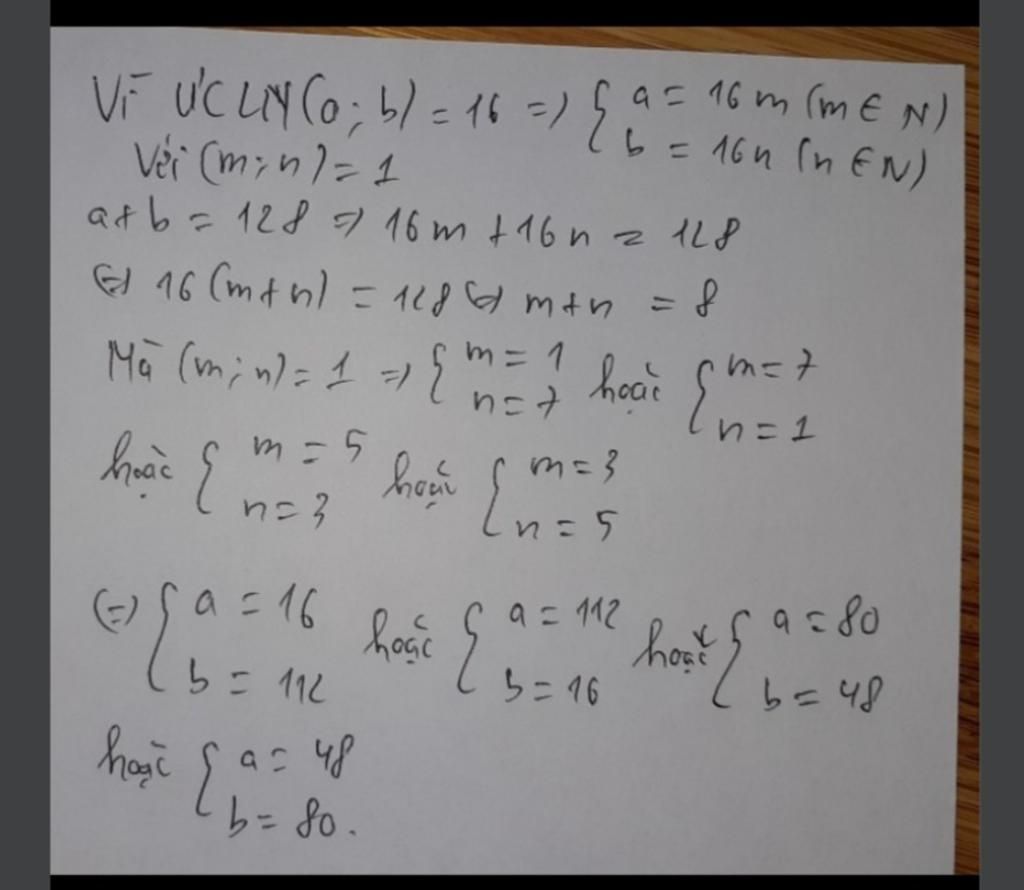 Vì ƯCLN(a; b) = 16 => { a = 16m (m ∈ N)
b = 16n (n ∈ N)
Với (m; n) = 1
a + b = 128 => 16m + 16n = 128
<=> 16 (m + n) = 128 <=> m + n = 8
Mà (m; n) = 1 => { m = 1 hoặc { m = 7
n = 7 n = 1
hoặc { m = 5 hoặc { m = 3
n = 3 n = 5
<=> { a = 16 hoặc { a = 112 hoặc { a = 80
b = 112 b = 16 b = 48
hoặc { a = 48
b = 80.